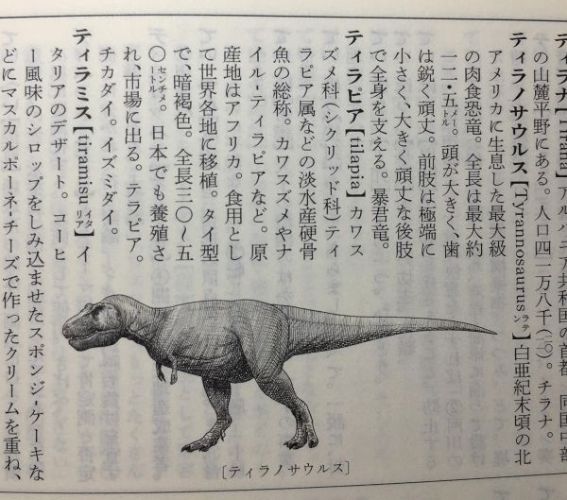 ティラナ【Tirana】アルバニア共和国の首都。同国中部
の山麓平野にある。人口四二万八千(二〇)。チラナ。
ティラノサウルス【Tyrannosaurus ラテン】白亜紀末頃の北
アメリカに生息した最大級
の肉食恐竜。全長は最大約
一二・五メートル。頭が大きく、歯
は鋭く頑丈。前肢は極端に
小さく、大きく頑丈な後肢
で全身を支える。暴君竜。
ティラピア【tilapia】カワス
ズメ科(シクリッド科)ティ
ラピア属などの淡水産硬骨
魚の総称。カワスズメやナ
イル‐ティラピアなど。原
産地はアフリカ。食用とし
て世界各地に移植。タイ型
で、暗褐色。全長三〇～五
〇センチメートル。日本でも養殖さ
れ、市場に出る。テラピア。
チカダイ。イズミダイ。
ティラミス【tiramisu イタリア】イ
タリアのデザート。コーヒ
ー風味のシロップをしみ込ませたスポンジ‐ケーキな
どにマスカルポーネ‐チーズで作ったクリームを重ね、
[ティラノサウルス]